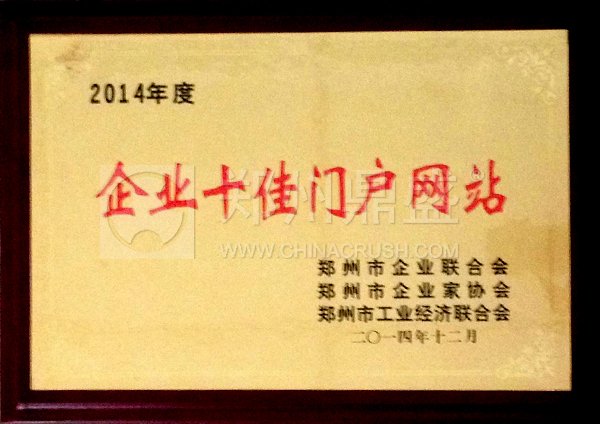 2014年度
企业十佳门户网站
郑州鼎盛
WWW.CHINACRUSH.COM
郑州市企业联合会
郑州市企业家协会
郑州市工业经济联合会
二〇一四年十二月